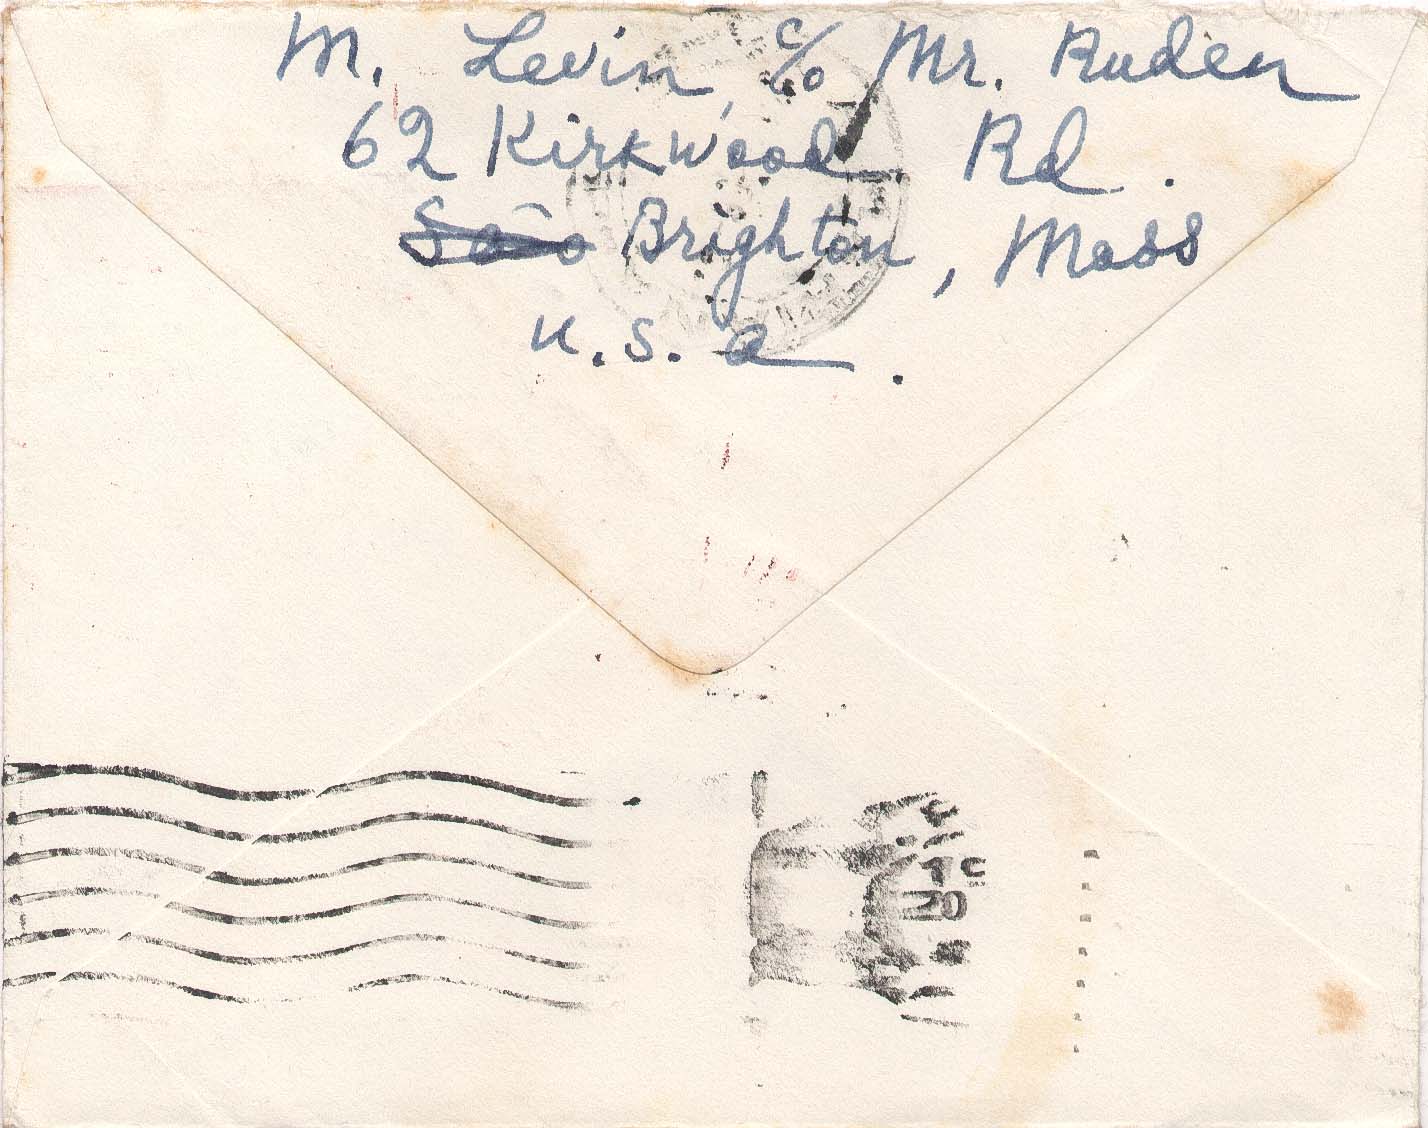 M. Levin, c/o Mr. Ruden
62 Kirkwood Rd.
São Brighton, Mass
U.S.A.
1 C
20